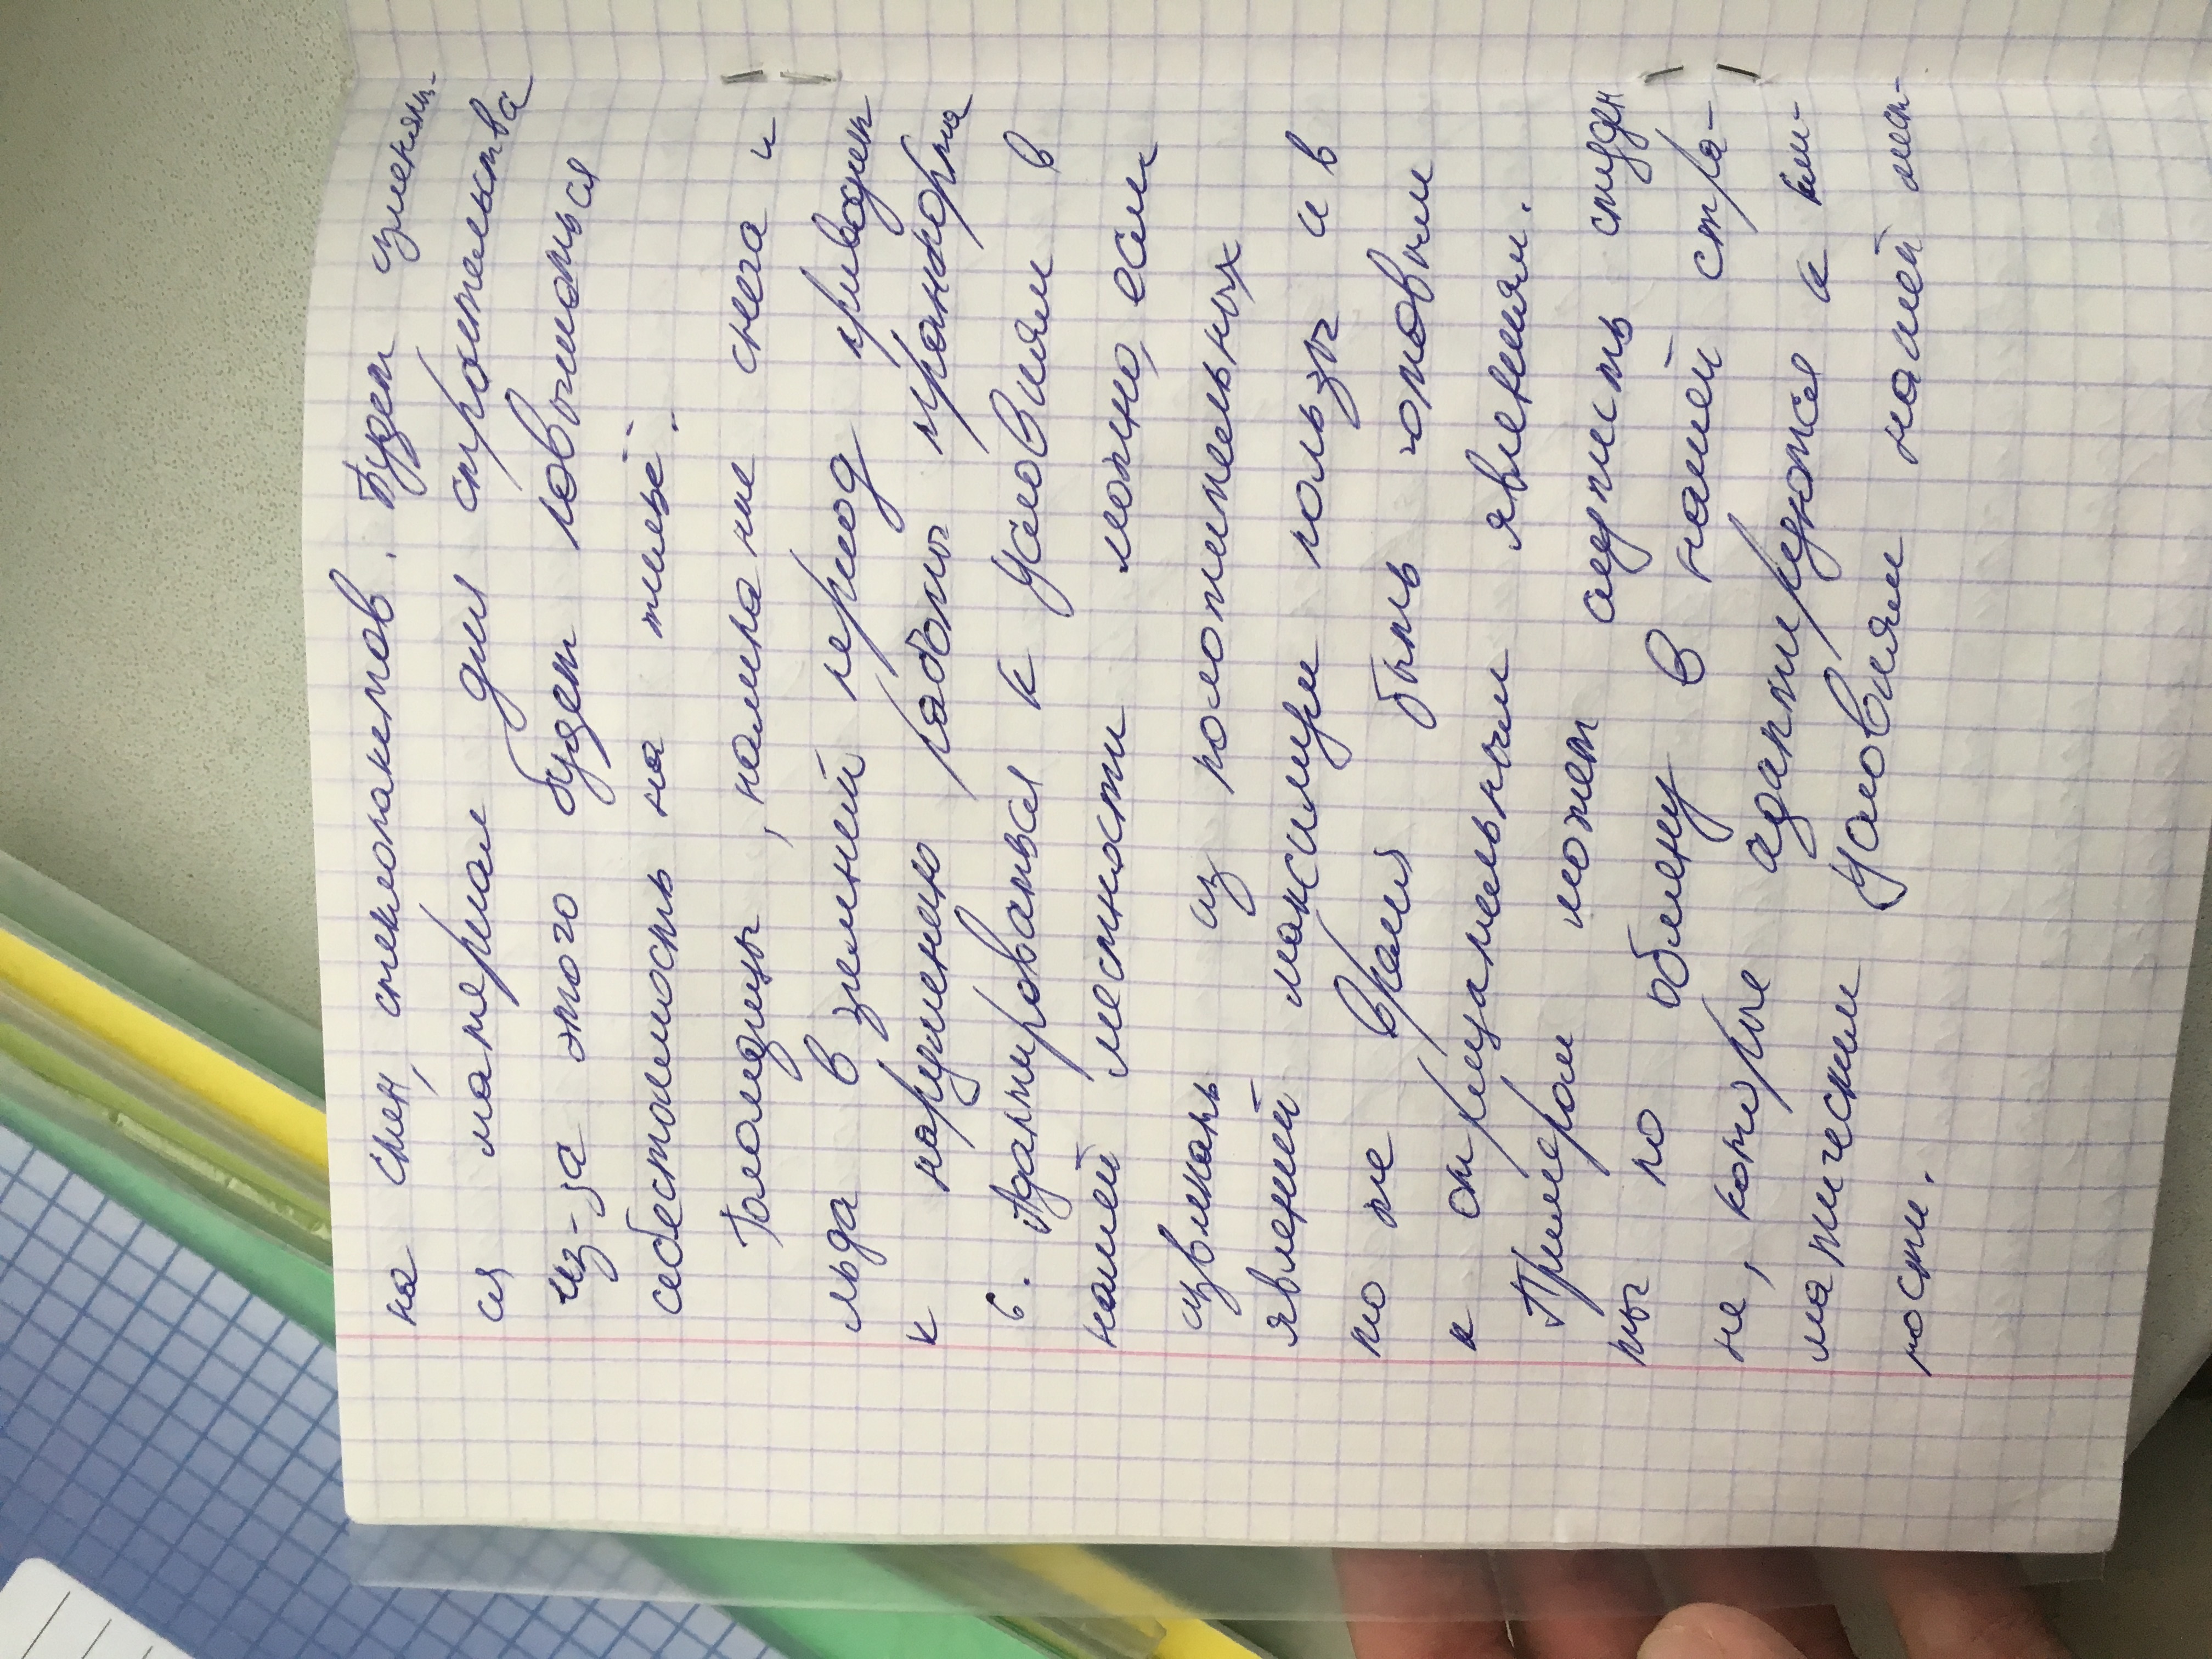 на стен, стеклопакетов. Будет изменять-
ся материал для строительства
из-за этого будет повышаться
себестоимость на жильё.
Гололедицы, налипание снега и
льда в зимний период приводит
к нарушению работы транспорта
6. Адаптироваться к условиям в
нашей местности можно, если
извлекать из положительных
явлений максимум пользы и в
то же время быть готовым
к отрицательным явлениям.
Примером может служить студен
ты по обмену в нашей стра-
не, которые адаптируются к кли-
матическим условиям нашей мест-
ности.